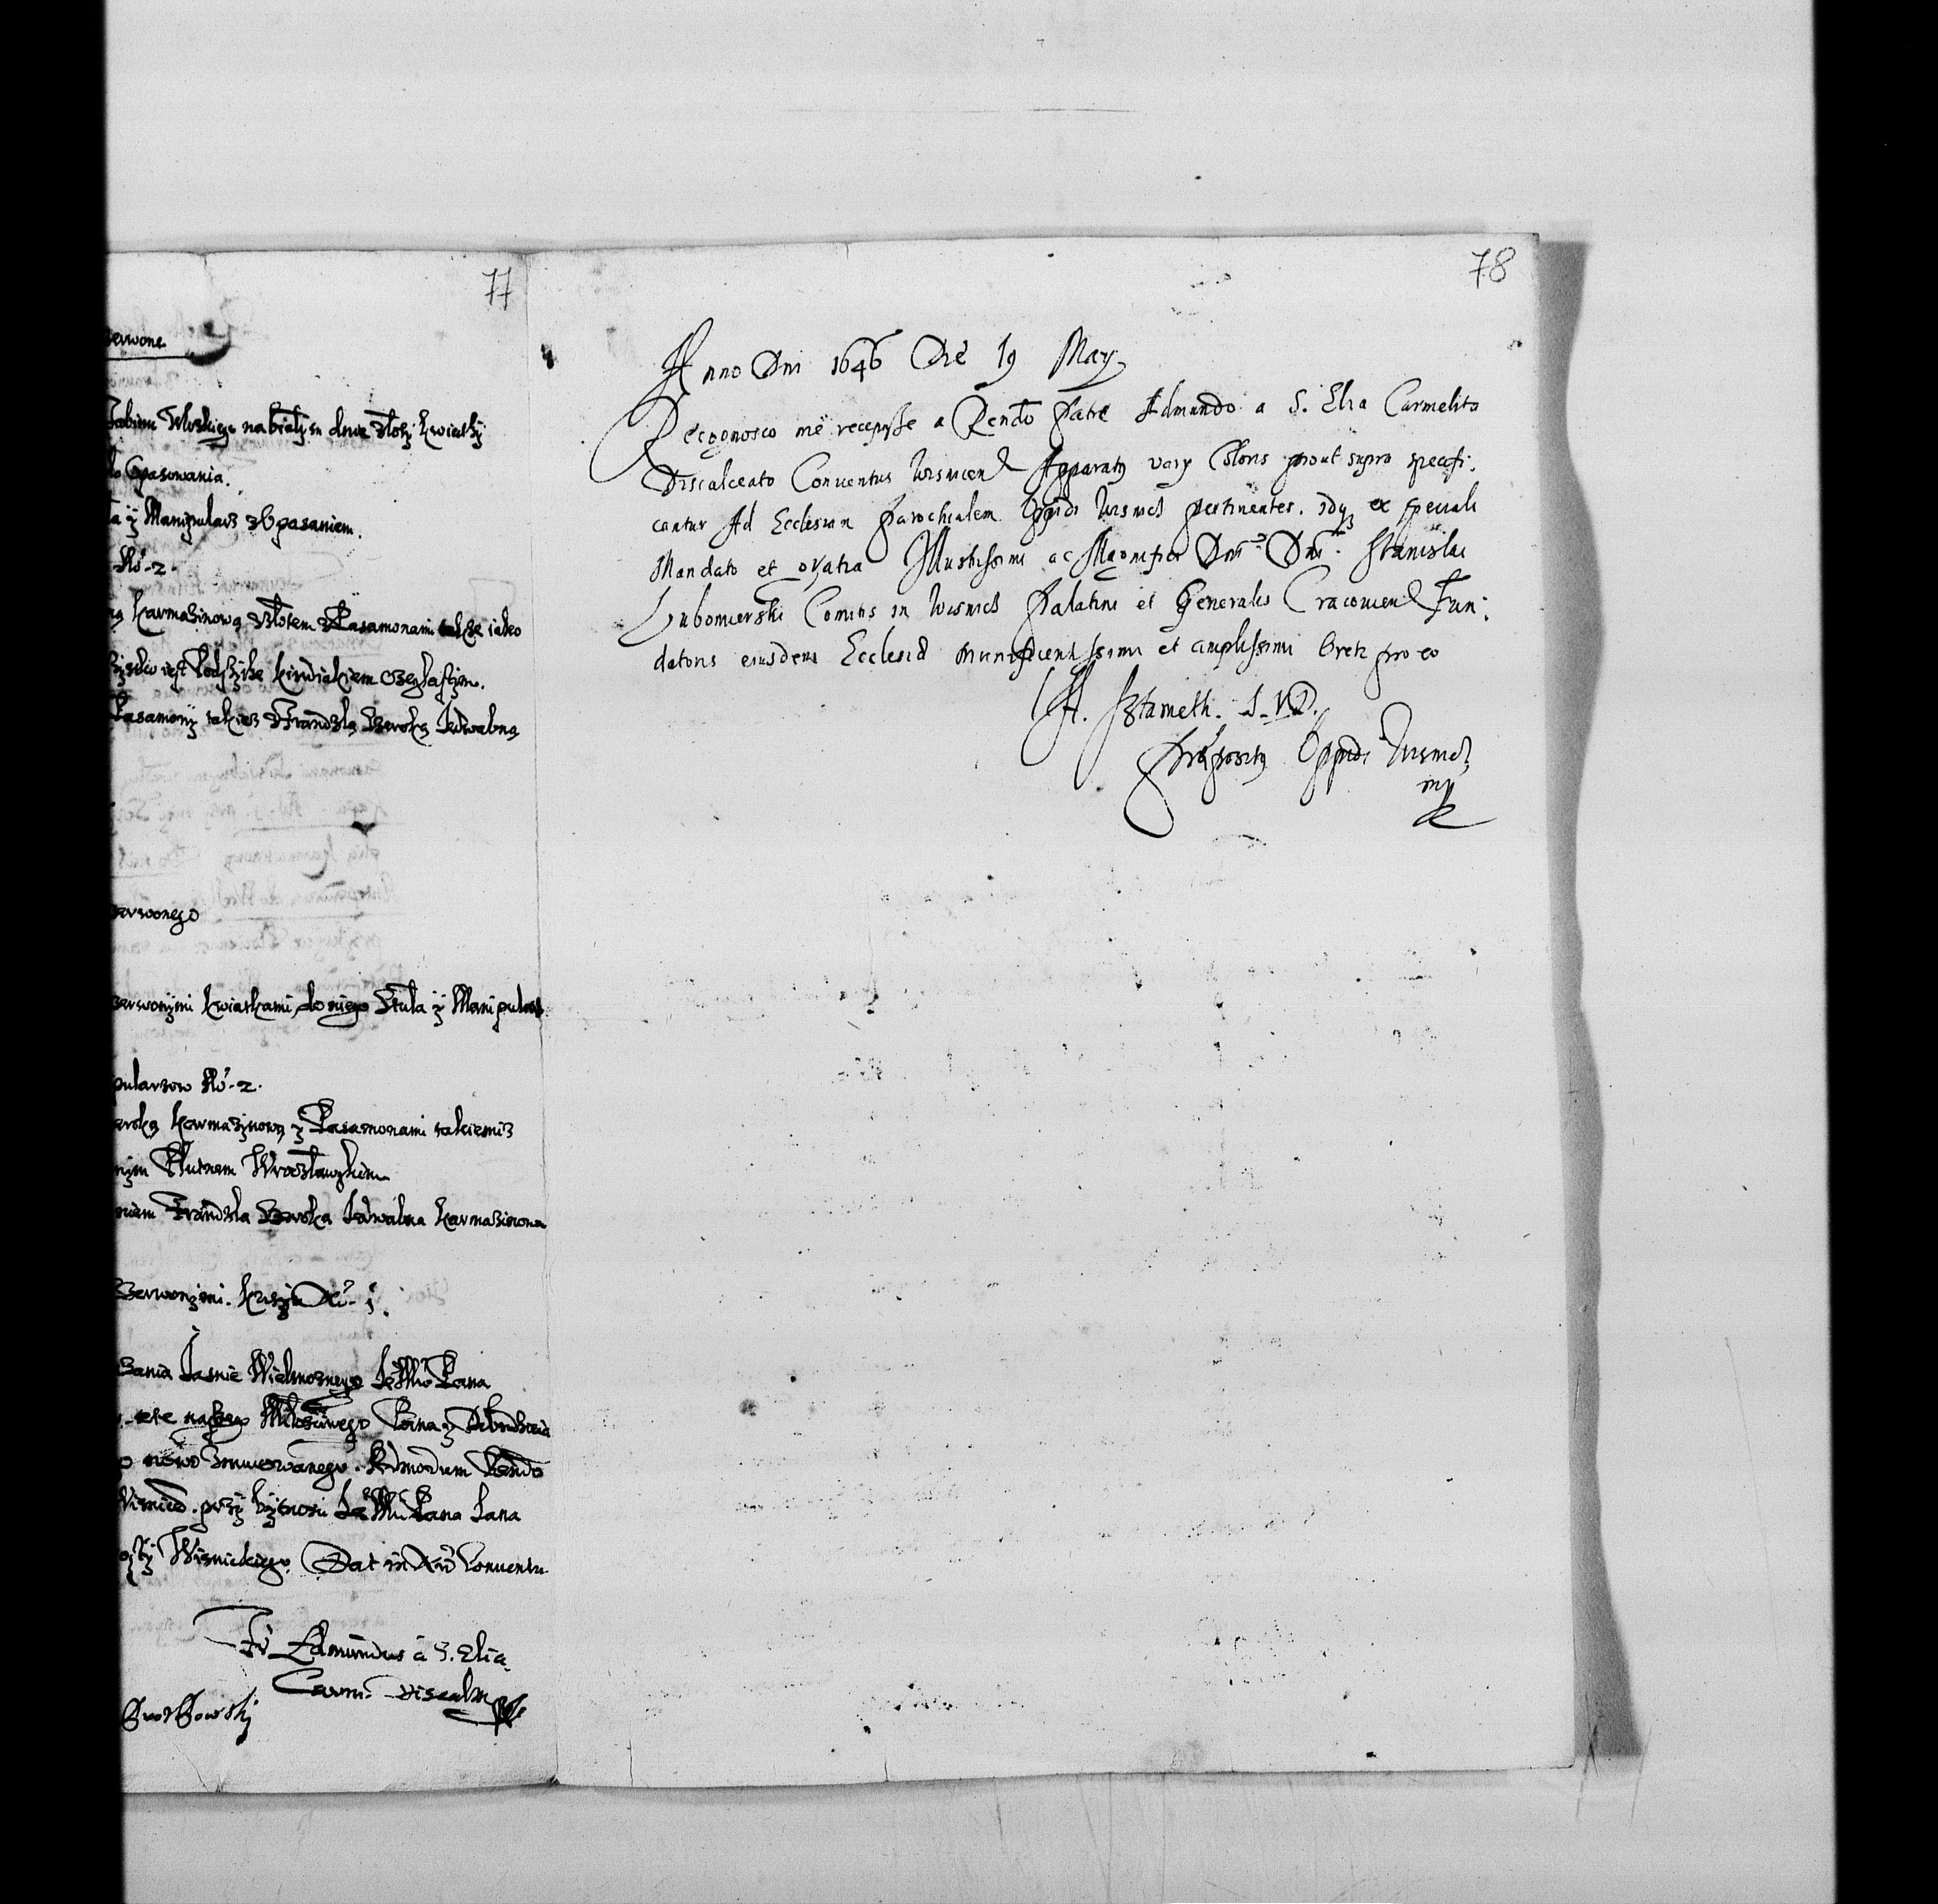 77
erwone
Tabinu Włoskiego na białym dnie złoty kwiatky
do Opasowania.
ła ÿ Manipularz z Opasaniem.
No 2.
ną karmazinową złotem Pasamonami także iako
iest Podszyke kindiakiem
Pasamony takiesz Frandzlą Berską Iedwabną
zerwonego
zerwonymi kwiatkami, do niego Stuła ÿ Manipularz
pularzow No 2.
erską karmazinową z Pasamonami takiemiz
nym Płutnem Wrocławskiem
niem Frandzla Berska Iedwabna karmazinowa
zerwonymi.
zania Iasnie Wielmoznego Ie Mci Pana
naszego Miłosciwego Pana y Dobrodzieia
o nowo Admodum Rendo
Wisnicz. przy bytnosci Ie Mci Pana Iana
Wisnickiego. Dat in Conventu
Fr Edmundus à S. Elia
Carm. Discalc
78
Anno Dni 1646 Die 19 May
Recognosco me recepisse a Rendo Patre Admundo a S. Elia Carmelita
Discalceato Conventus Wisnicen Apparatg varÿ Coloris prout supra specifi.
cantur Ad Ecclesiam Parochialem Oppidi Wisnich pertinentes. idq ex speciali
Mandato et gratia Illustrissimi ac Magnifici Dni Dni Stanislai
Lubomierski Comitis in Wisnich Palatini et Generalis Cracovien Fun:
datoris eiusdem Ecclesiæ munificentissimi et amplissimi Oretz pro eo
Sztameth. I. V. D.
Præpositg Oppidi Wisnich
mp